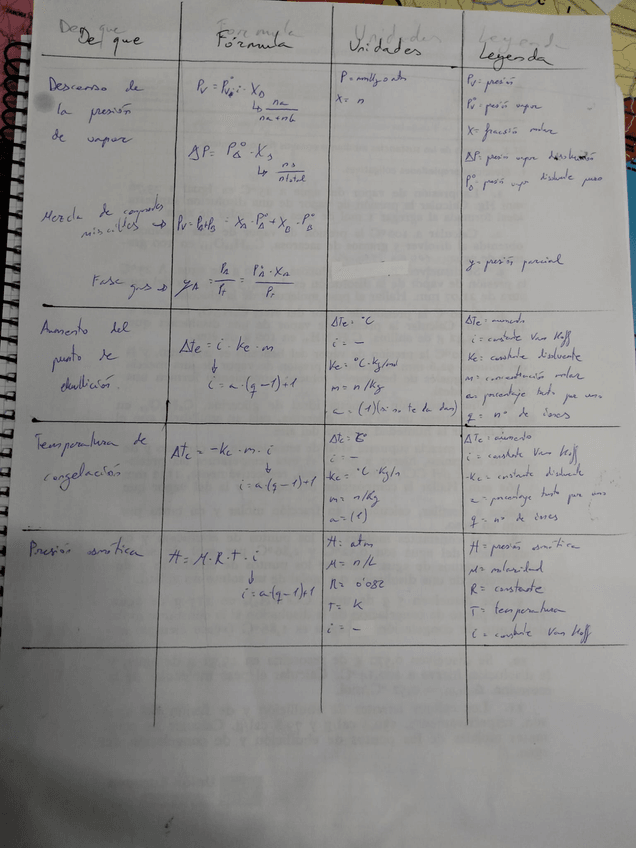 De que Fórmula Unidades Leyenda
De que Fórmula Unidades Leyenda
Descenso de
la presión
de vapor
Pv = P°v · i · X
na
na+nb
ΔP = P°_A · X_s
ns
ntotal
P = mmHg o atm
X = n
Pv = presión
P°v = presión vapor
X = fracción molar
ΔP = presión vapor disolución
P° = presión vapor disolvente puro
Mezcla de
miscibles →
Pv = PA+PB = XA · P°A + XB · P°B
Fase gas →
yA = PA/PT = P°A · XA/PT
y = presión parcial
Aumento del
punto de
ebullición.
ΔTe = i · Ke · m
↓
i = a · (q - 1) + 1
ΔTe = °C
i = -
Ke = °C · Kg/mol
m = n/kg
a = (1) (si no te da dan)
ΔTe = aumento
i = constante Van Hoff
Ke = constante disolvente
m = concentración molar
a = porcentaje tanto por uno
q = n° de iones
Temperatura de
congelación
Δtc = -Kc · m · i
↓
i = a · (q - 1) + 1
ΔTc =
i = -
-Kc = °C · Kg/n
m = n/Kg
a = (1)
ΔTc = aumento
i = constante Van Hoff
-Kc = constante disolvente
a = porcentaje tanto por uno
q = n° de iones
Presión osmótica
H = M · R · T · i
↓
i = a · (q - 1) + 1
H = atm
M = n/L
R = 0'082
T = K
i = -
H = presión osmótica
M = molaridad
R = constante
T = temperatura
i = constante Van Hoff